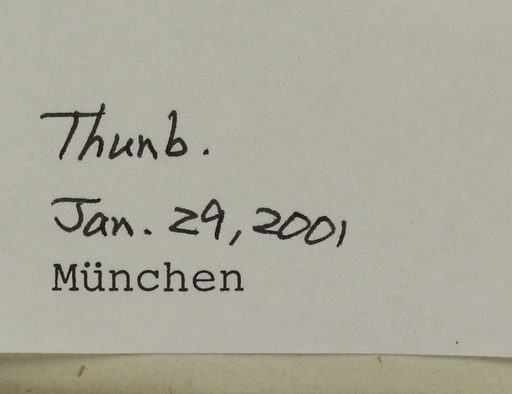 Thunb.
Jan. 29, 2001
München